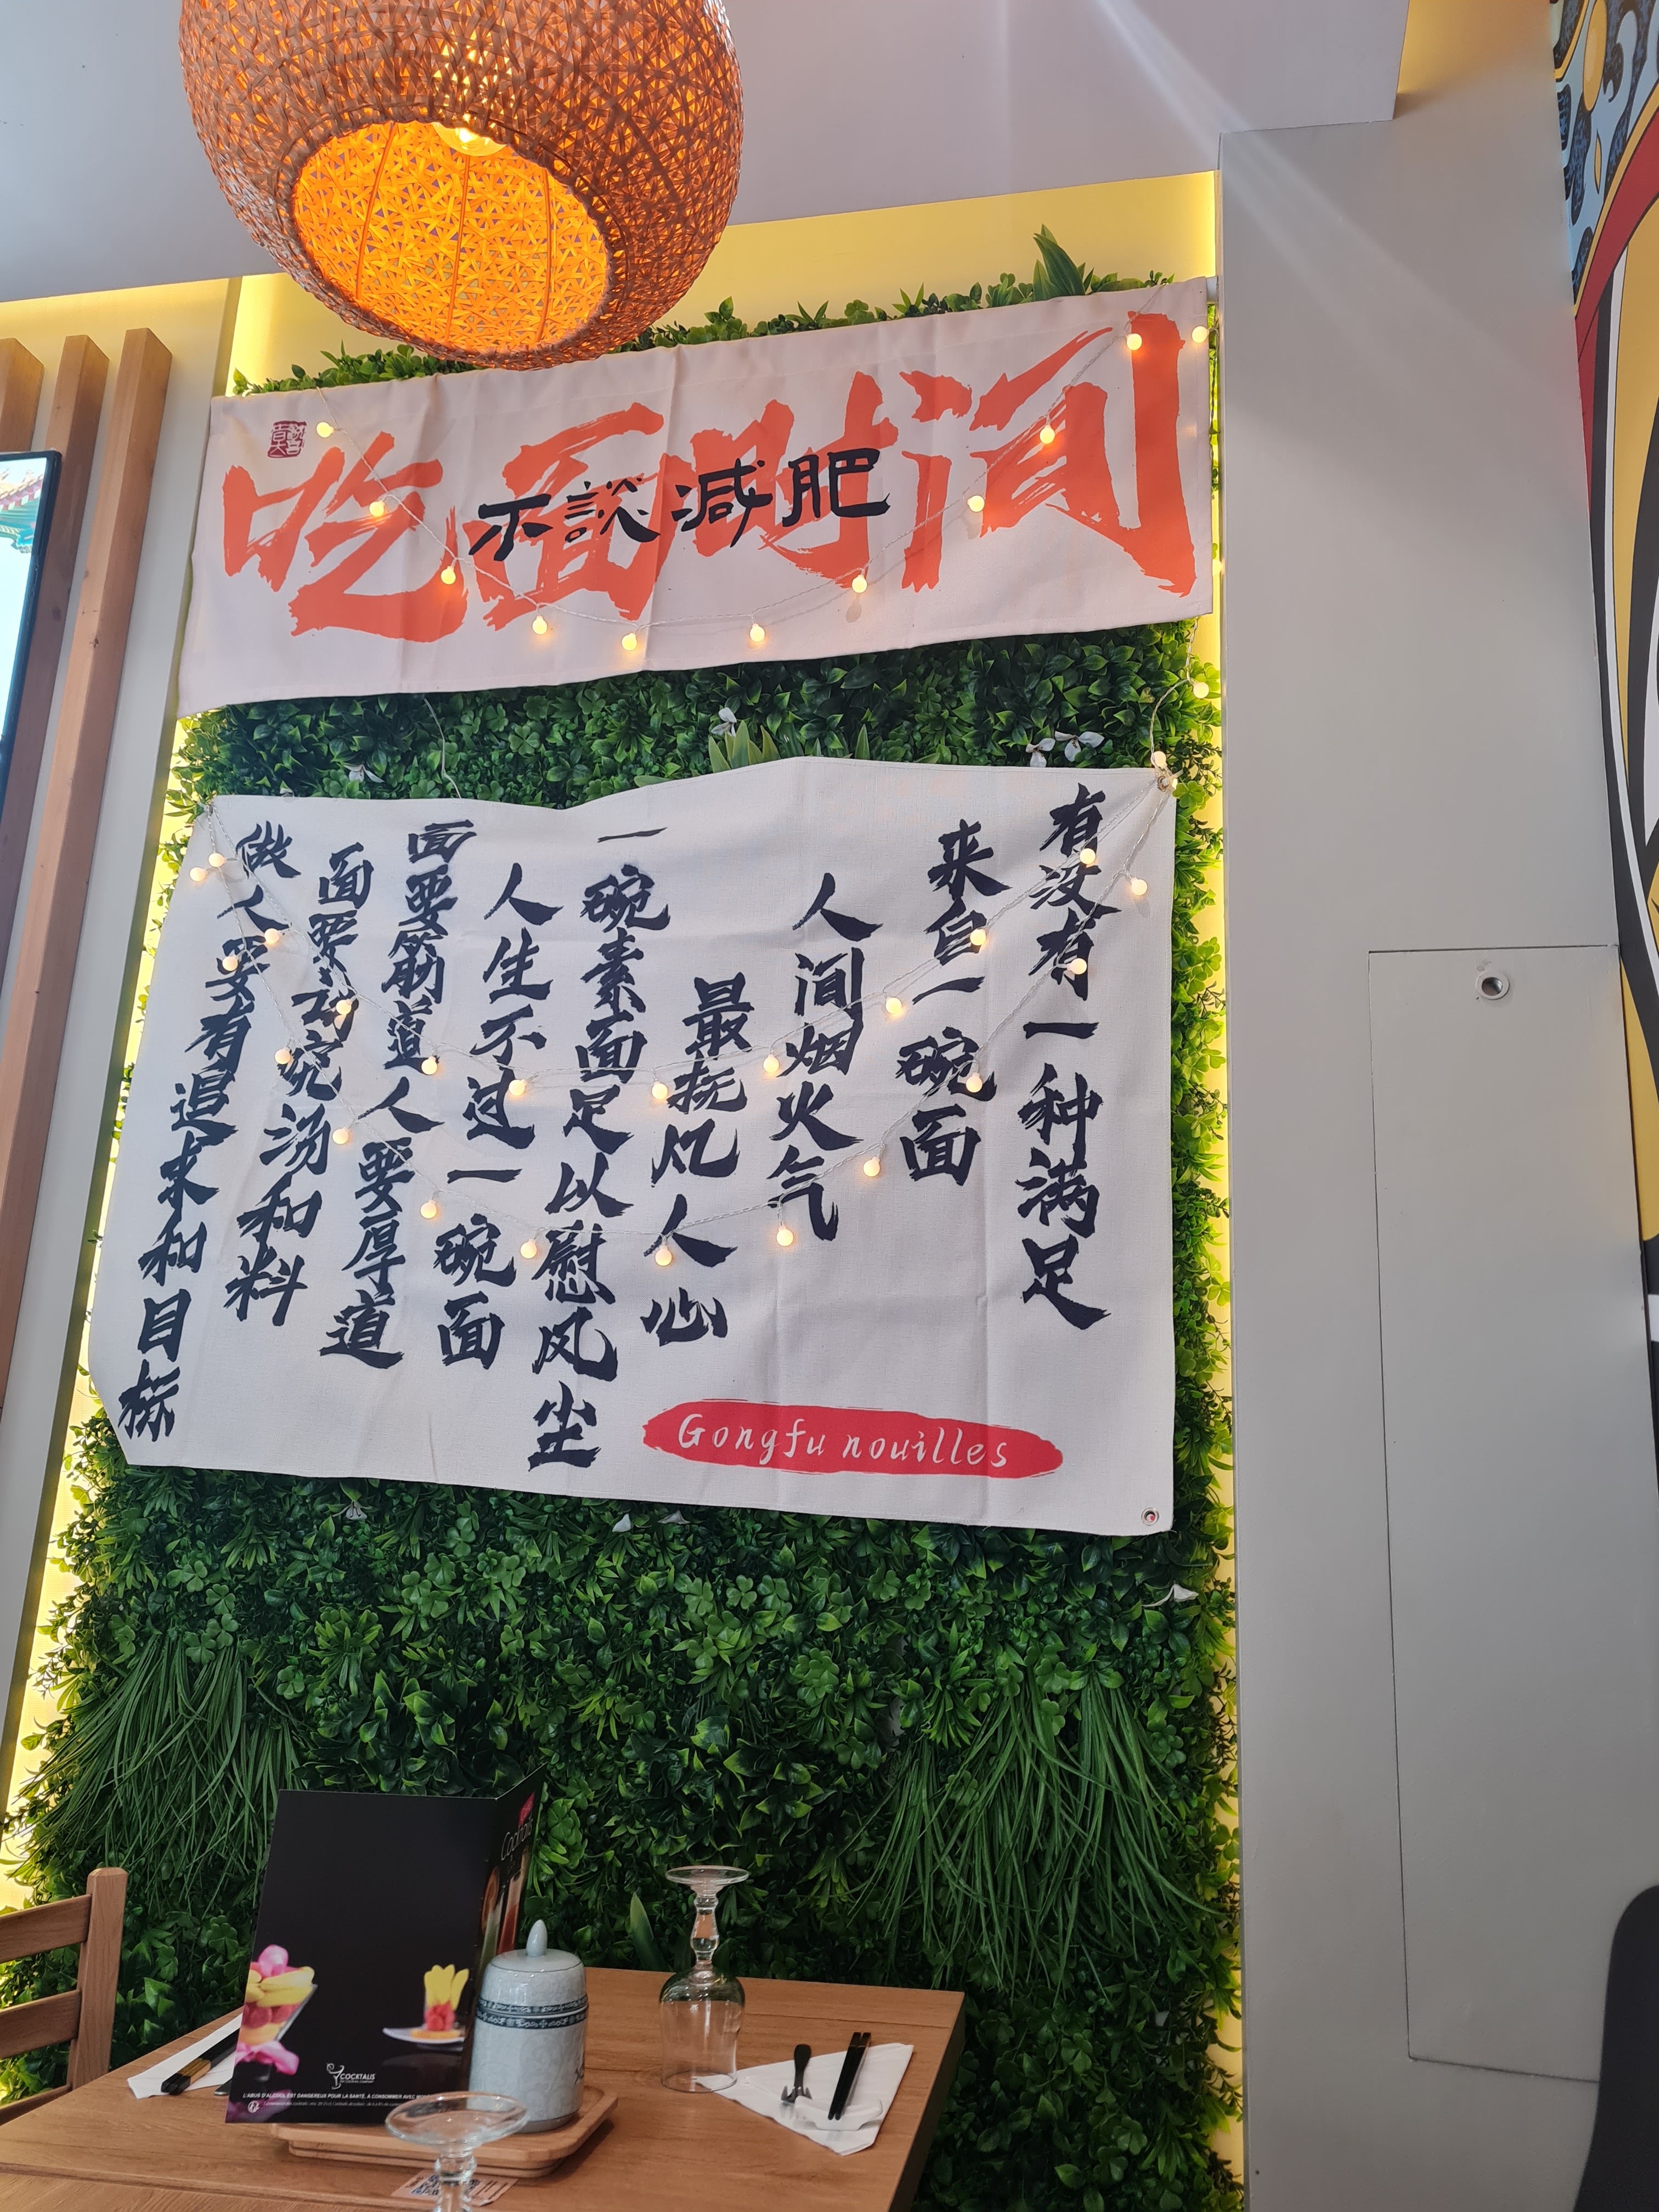 吃面时间
不談减肥
有没有一种满足
来自一碗面
人间烟火气
最抚凡人心
一碗素面足以慰风尘
人生不过一碗面
面要筋道人要厚道
面要讲究汤和料
做人要有追求和目标
Gongfu nouilles
Cocktails
COCKTAILS
L'ABUS D'ALCOOL EST DANGEREUX POUR LA SANTÉ, À CONSOMMER AVEC